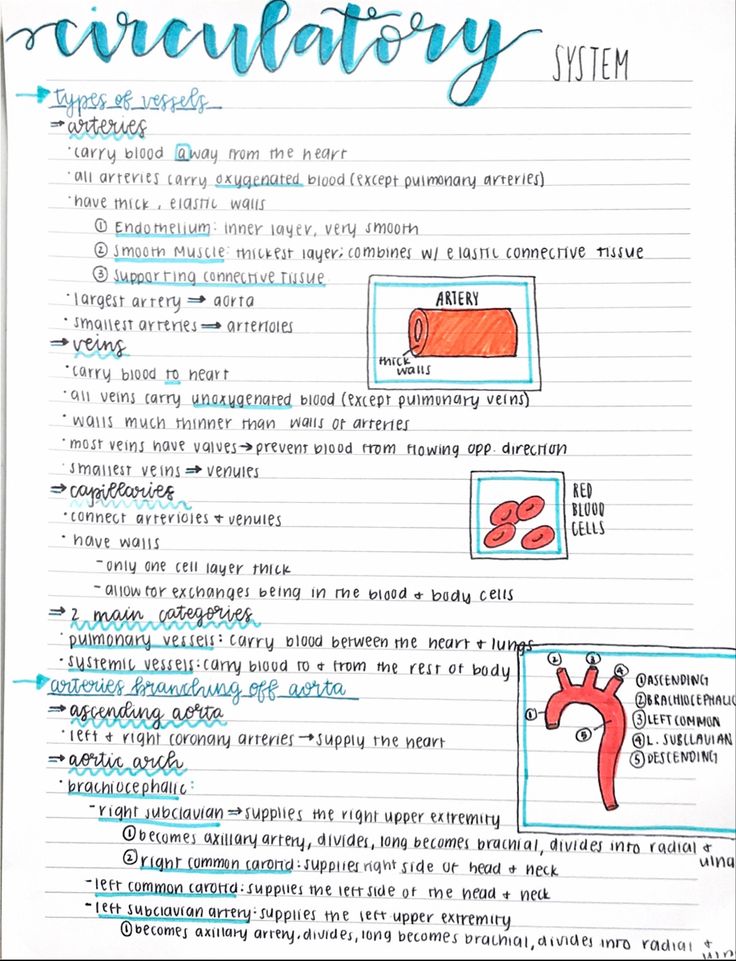 circulatory SYSTEM
types of vessels
⇒ arteries
· carry blood away from the heart
· all arteries carry oxygenated blood (except pulmonary arteries)
· have thick, elastic walls
① Endothelium: inner layer, very smooth
② Smooth Muscle: thickest layer; combines w/ elastic connective tissue
③ Supporting connective tissue
· largest artery ⇒ aorta
· smallest arteries ⇒ arterioles
ARTERY
thick
walls
⇒ veins
· carry blood to heart
· all veins carry unoxygenated blood (except pulmonary veins)
· walls much thinner than walls of arteries
· most veins have valves → prevent blood from flowing opp. direction
· smallest veins ⇒ venules
⇒ capillaries
· connect arterioles & venules
· have walls
- only one cell layer thick
- allow for exchanges being in the blood & body cells
RED
BLOOD
CELLS
⇒ 2 main categories
· pulmonary vessels: carry blood between the heart & lungs
· systemic vessels: carry blood to & from the rest of body
arteries branching off aorta
⇒ ascending aorta
· left & right coronary arteries → supply the heart
⇒ aortic arch
· brachiocephalic:
- right subclavian ⇒ supplies the right upper extremity
① becomes axillary artery, divides, long becomes brachial, divides into radial & ulna
② right common carotid: supplies right side of head & neck
- left common carotid: supplies the left side of the head & neck
- left subclavian artery: supplies the left upper extremity
① becomes axillary artery, divides, long becomes brachial, divides into radial &
① ② ③ ④ ⑤
① ASCENDING
② BRACHIOCEPHALIC
③ LEFT COMMON
④ L. SUBCLAVIAN
⑤ DESCENDING